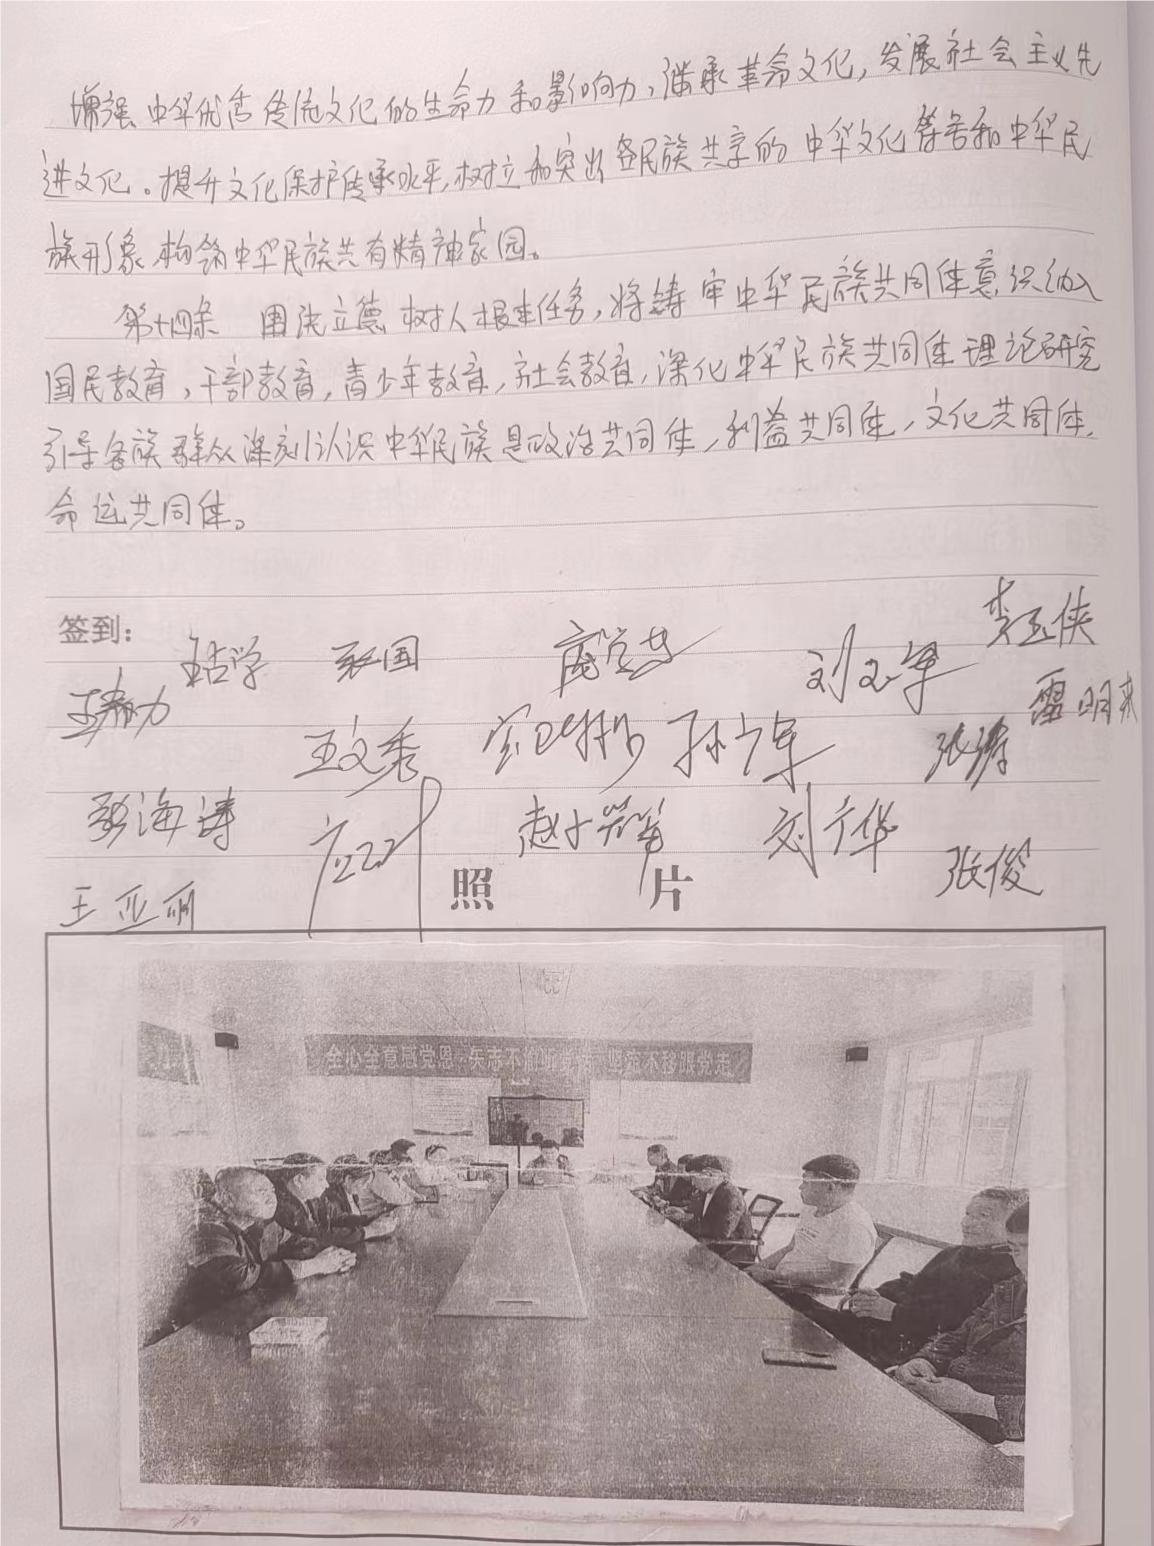 增强中华优秀传统文化的生命力和影响力，继承革命文化，发展社会主义先
进文化。提升文化保护传承水平，树立和突出各民族共享的中华文化符号和中华民
族形象，构筑中华民族共有精神家园。
第十四条 围绕立德树人根本任务，将铸牢中华民族共同体意识纳入
国民教育，干部教育，青少年教育，社会教育，深化中华民族共同体理论研究
引导各族群众深刻认识中华民族是政治共同体，利益共同体，文化共同体，
命运共同体。
签到：
李玉侠
刘玉军
雷明来
王文秀
孙广军
张海涛
刘广华
张俊
王亚丽
照 片
全心全意感党恩 矢志不渝听党话 坚定不移跟党走